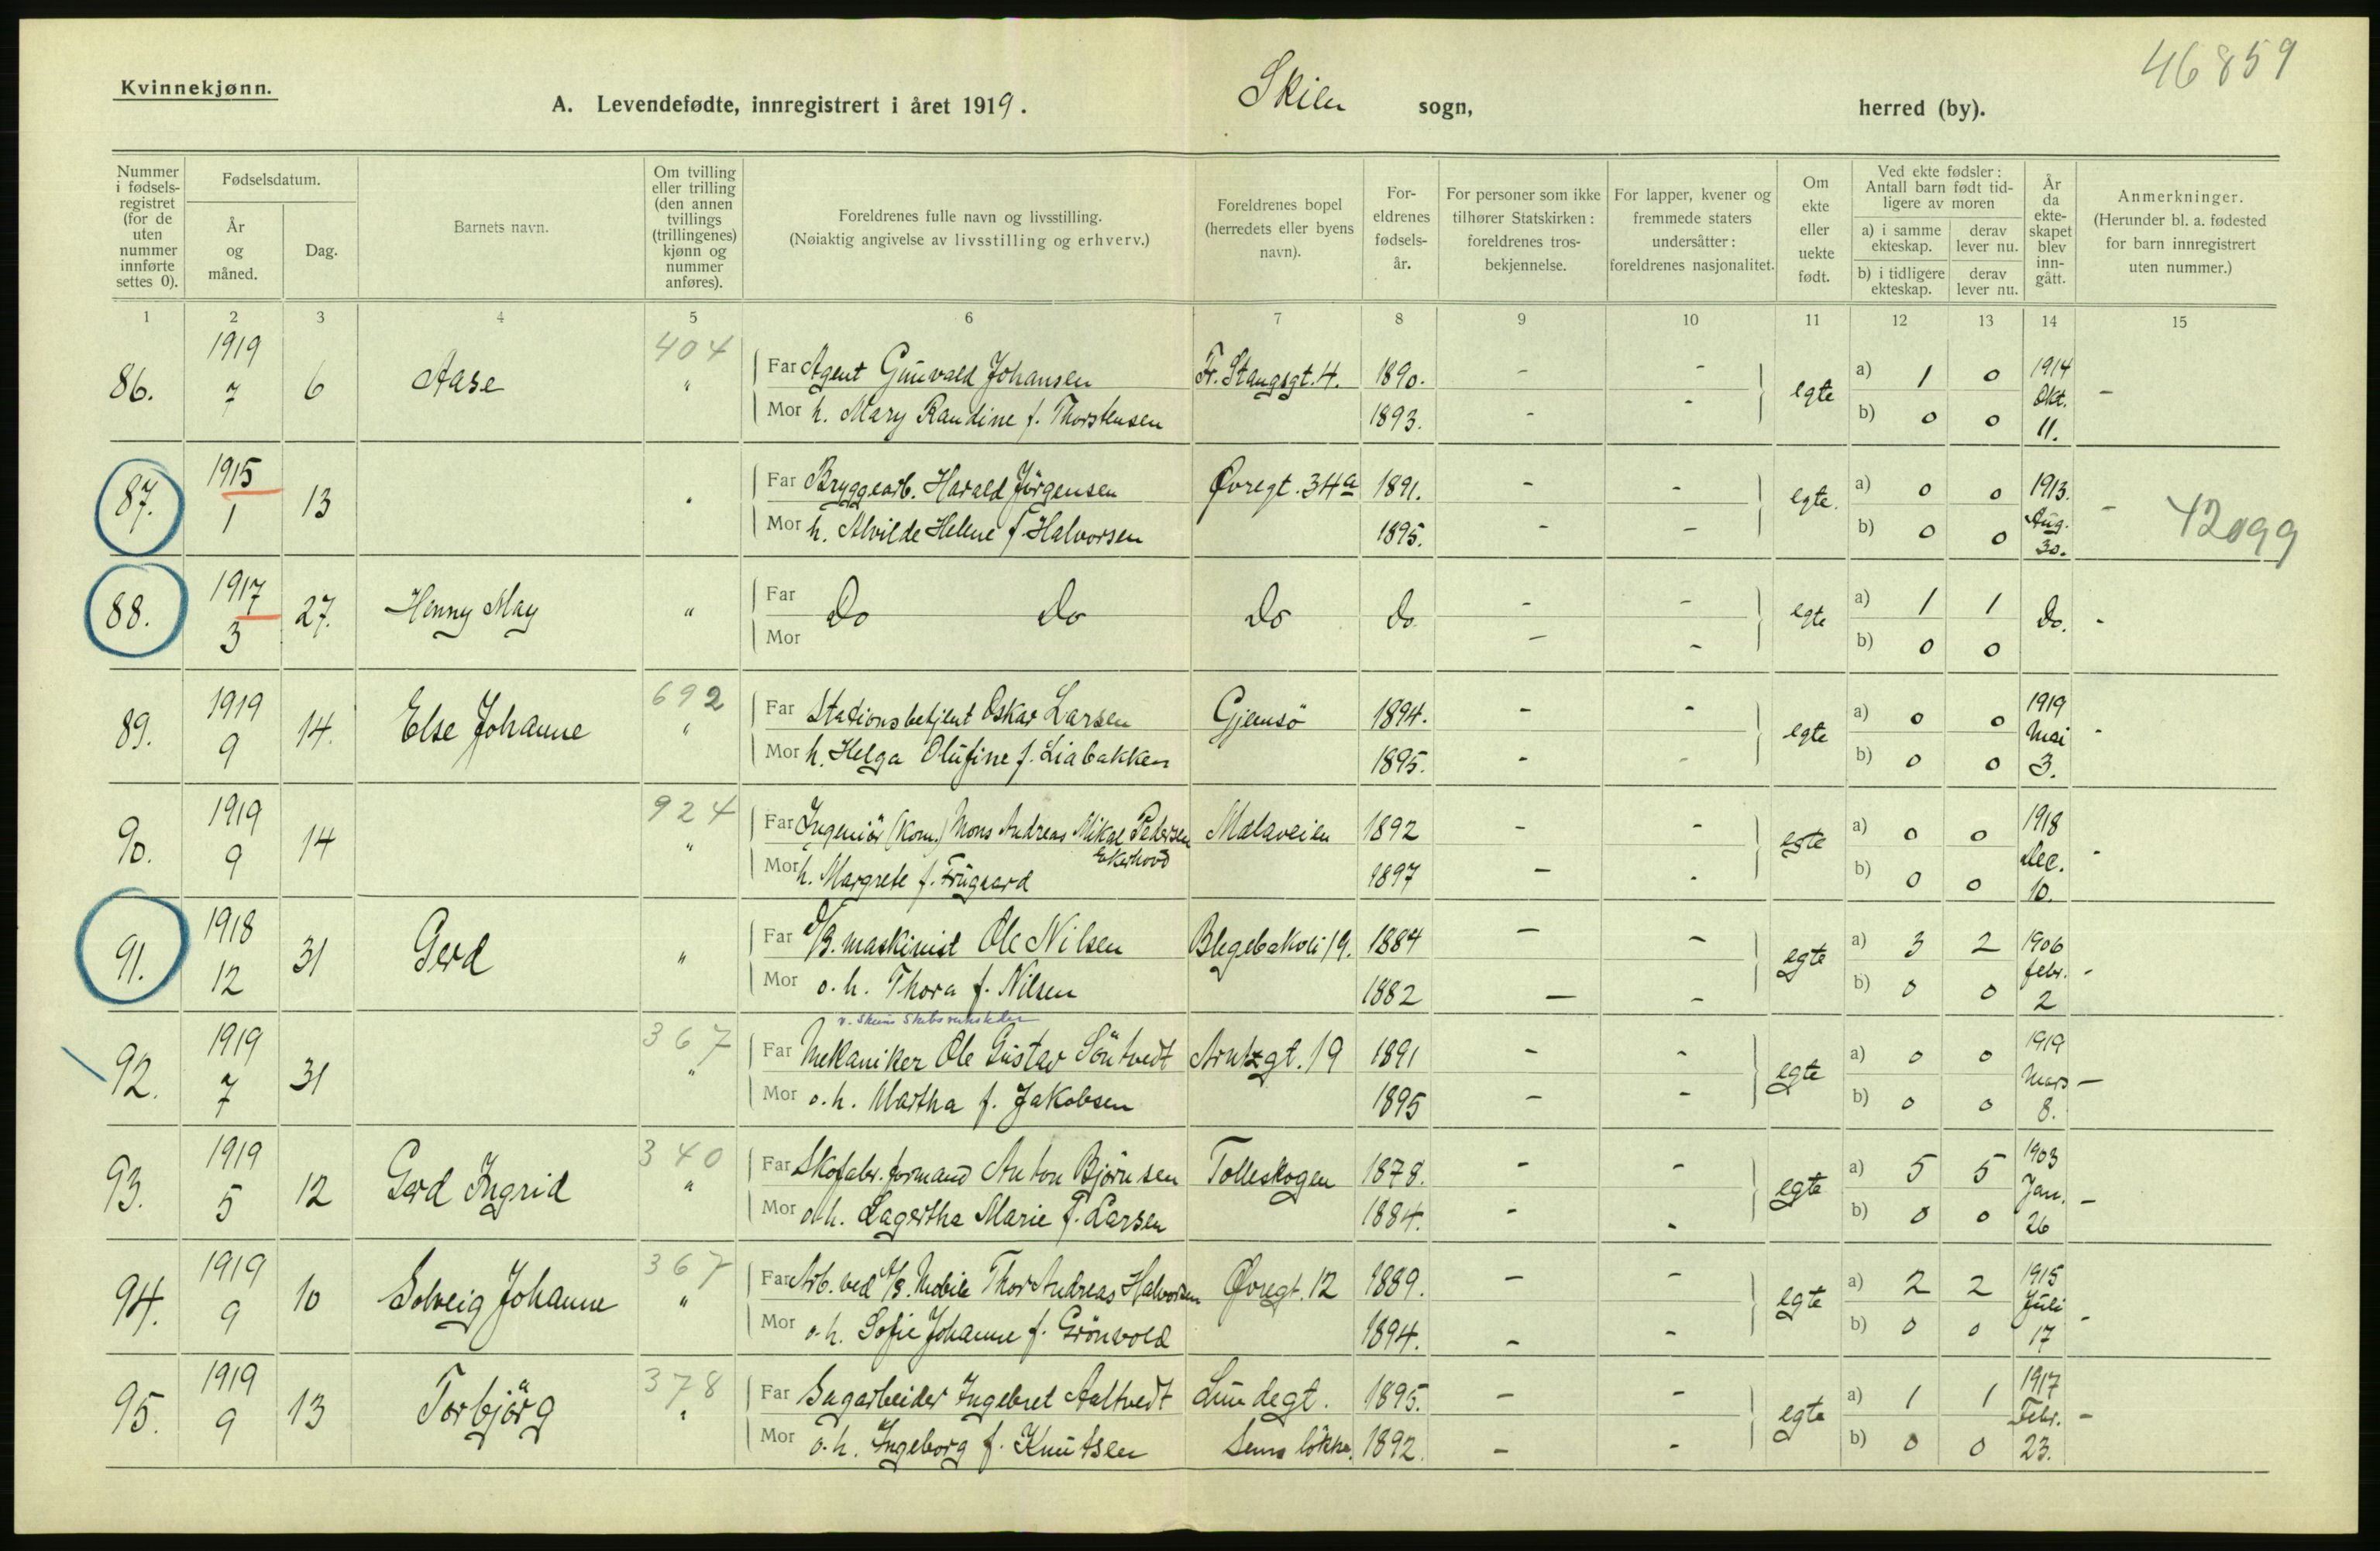 46859
Kvinnekjønn.
A. Levendefødte, innregistrert i året 1919. Skien sogn, herred (by).
Nummer i fødsels-registret (for de uten nummer innførte settes 0).
Fødselsdatum.
År og måned.
Dag.
Barnets navn.
Om tvilling eller trilling (den annen tvillings (trillingenes) kjønn og nummer anføres).
Foreldrenes fulle navn og livsstilling.
(Nøiaktig angivelse av livsstilling og erhverv.)
Foreldrenes bopel (herredets eller byens navn).
For-eldrenes fødsels-år.
For personer som ikke tilhører Statskirken: foreldrenes tros-bekjennelse.
For lapper, kvener og fremmede staters undersåtter: foreldrenes nasjonalitet.
Om ekte eller uekte født.
Ved ekte fødsler: Antall barn født tid-ligere av moren
a) i samme ekteskap.
derav lever nu.
b) i tidligere ekteskap.
derav lever nu.
År da ekte-skapet blev inn-gått.
Anmerkninger.
(Herunder bl. a. fødested for barn innregistrert uten nummer.)
1 2 3 4 5 6 7 8 9 10 11 12 13 14 15
86. 1919 7 6 Aase 404 "
Far Agent Gunvald Johansen Fr. Stangsgt. 4. 1890. - - egte a) 1 0 1914 Okt. 11. -
Mor h. Mary Randine f. Thorstensen 1893. - - b) 0 0
87. 1915 1 13
Far Bryggearb. Harald Jörgensen Øvregt. 34a 1891. - - egte. a) 0 0 1913. Aug. 30. - 42099
Mor h. Alvilde Helene f. Halvorsen 1895. - - b) 0 0
88. 1917 3 27. Henny May "
Far Do Do Do Do - - egte a) 1 1 Do. -
Mor - - b) 0 0
89. 1919 9 14. Else Johanne 692 "
Far Stationsbetjent Oskar Larsen Gjemsö 1894. - - egte a) 0 0 1919 Mai 3. -
Mor h. Helga Olufine f. Liabakken 1895. - - b) 0 0
90. 1919 9 14 924 "
Far Ingeniör (Kom.) Mons Andreas Mikal Pedersen Ekerhovd Mælaveien 1892 - - egte a) 0 0 1918 Dec. 10. -
Mor h. Margrete f. Frugaard 1897 - - b) 0 0
91. 1918 12 31 Gerd "
Far D/S. maskinist Ole Nilsen Blegebakoli 19. 1884 - - egte a) 3 2 1906 febr. 2 -
Mor o. h. Thora f. Nilsen 1882 - - b) 0 0
92. 1919 7 31 367 "
Far Mekaniker Ole Gustav Söntvedt Arntzgt. 19 1891 - - egte a) 0 0 1919 Mars 8. -
Mor o. h. Martha f. Jakobsen 1895 - - b) 0 0
93. 1919 5 12 Gerd Ingrid 340 "
Far Skofabr. formand Anton Bjørnsen Tolleskogen 1878. - - egte a) 5 5 1903 Jan. 26 -
Mor o. h. Lagertha Marie f. Larsen 1884. - - b) 0 0
94. 1919 9 10 Solveig Johanne 367 "
Far Arb. ved A/S. Mobile Thor Andreas Halvorsen Øvregt. 12 1889. - - egte a) 2 2 1915 Juli 17 -
Mor o. h. Sofie Johanne f. Grönvold 1894. - - b) 0 0
95. 1919 9 13 Torbjörg 378 "
Far Sagarbeider Ingebret Aaltvedt Lundegt. 1895. - - egte a) 1 1 1917 Febr. 23. -
Mor o. h. Ingeborg f. Knutsen Sems lökke. 1892. - - b) 0 0